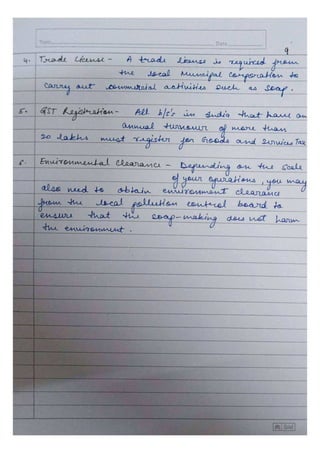 Date
9
4. Trade License - A trade license is required from
the local Municipal Corporation to
carry out commercial activities such as soap.
5. GST Registration - All b/s's in India that have an
annual turnover of more than
20 lakhs must register for Goods and Services Tax
6. Environmental Clearance - Depending on the scale
of your operations, you may
also need to obtain environment clearance
from the local pollution control board to
ensure that the soap-making does not harm
the environment.